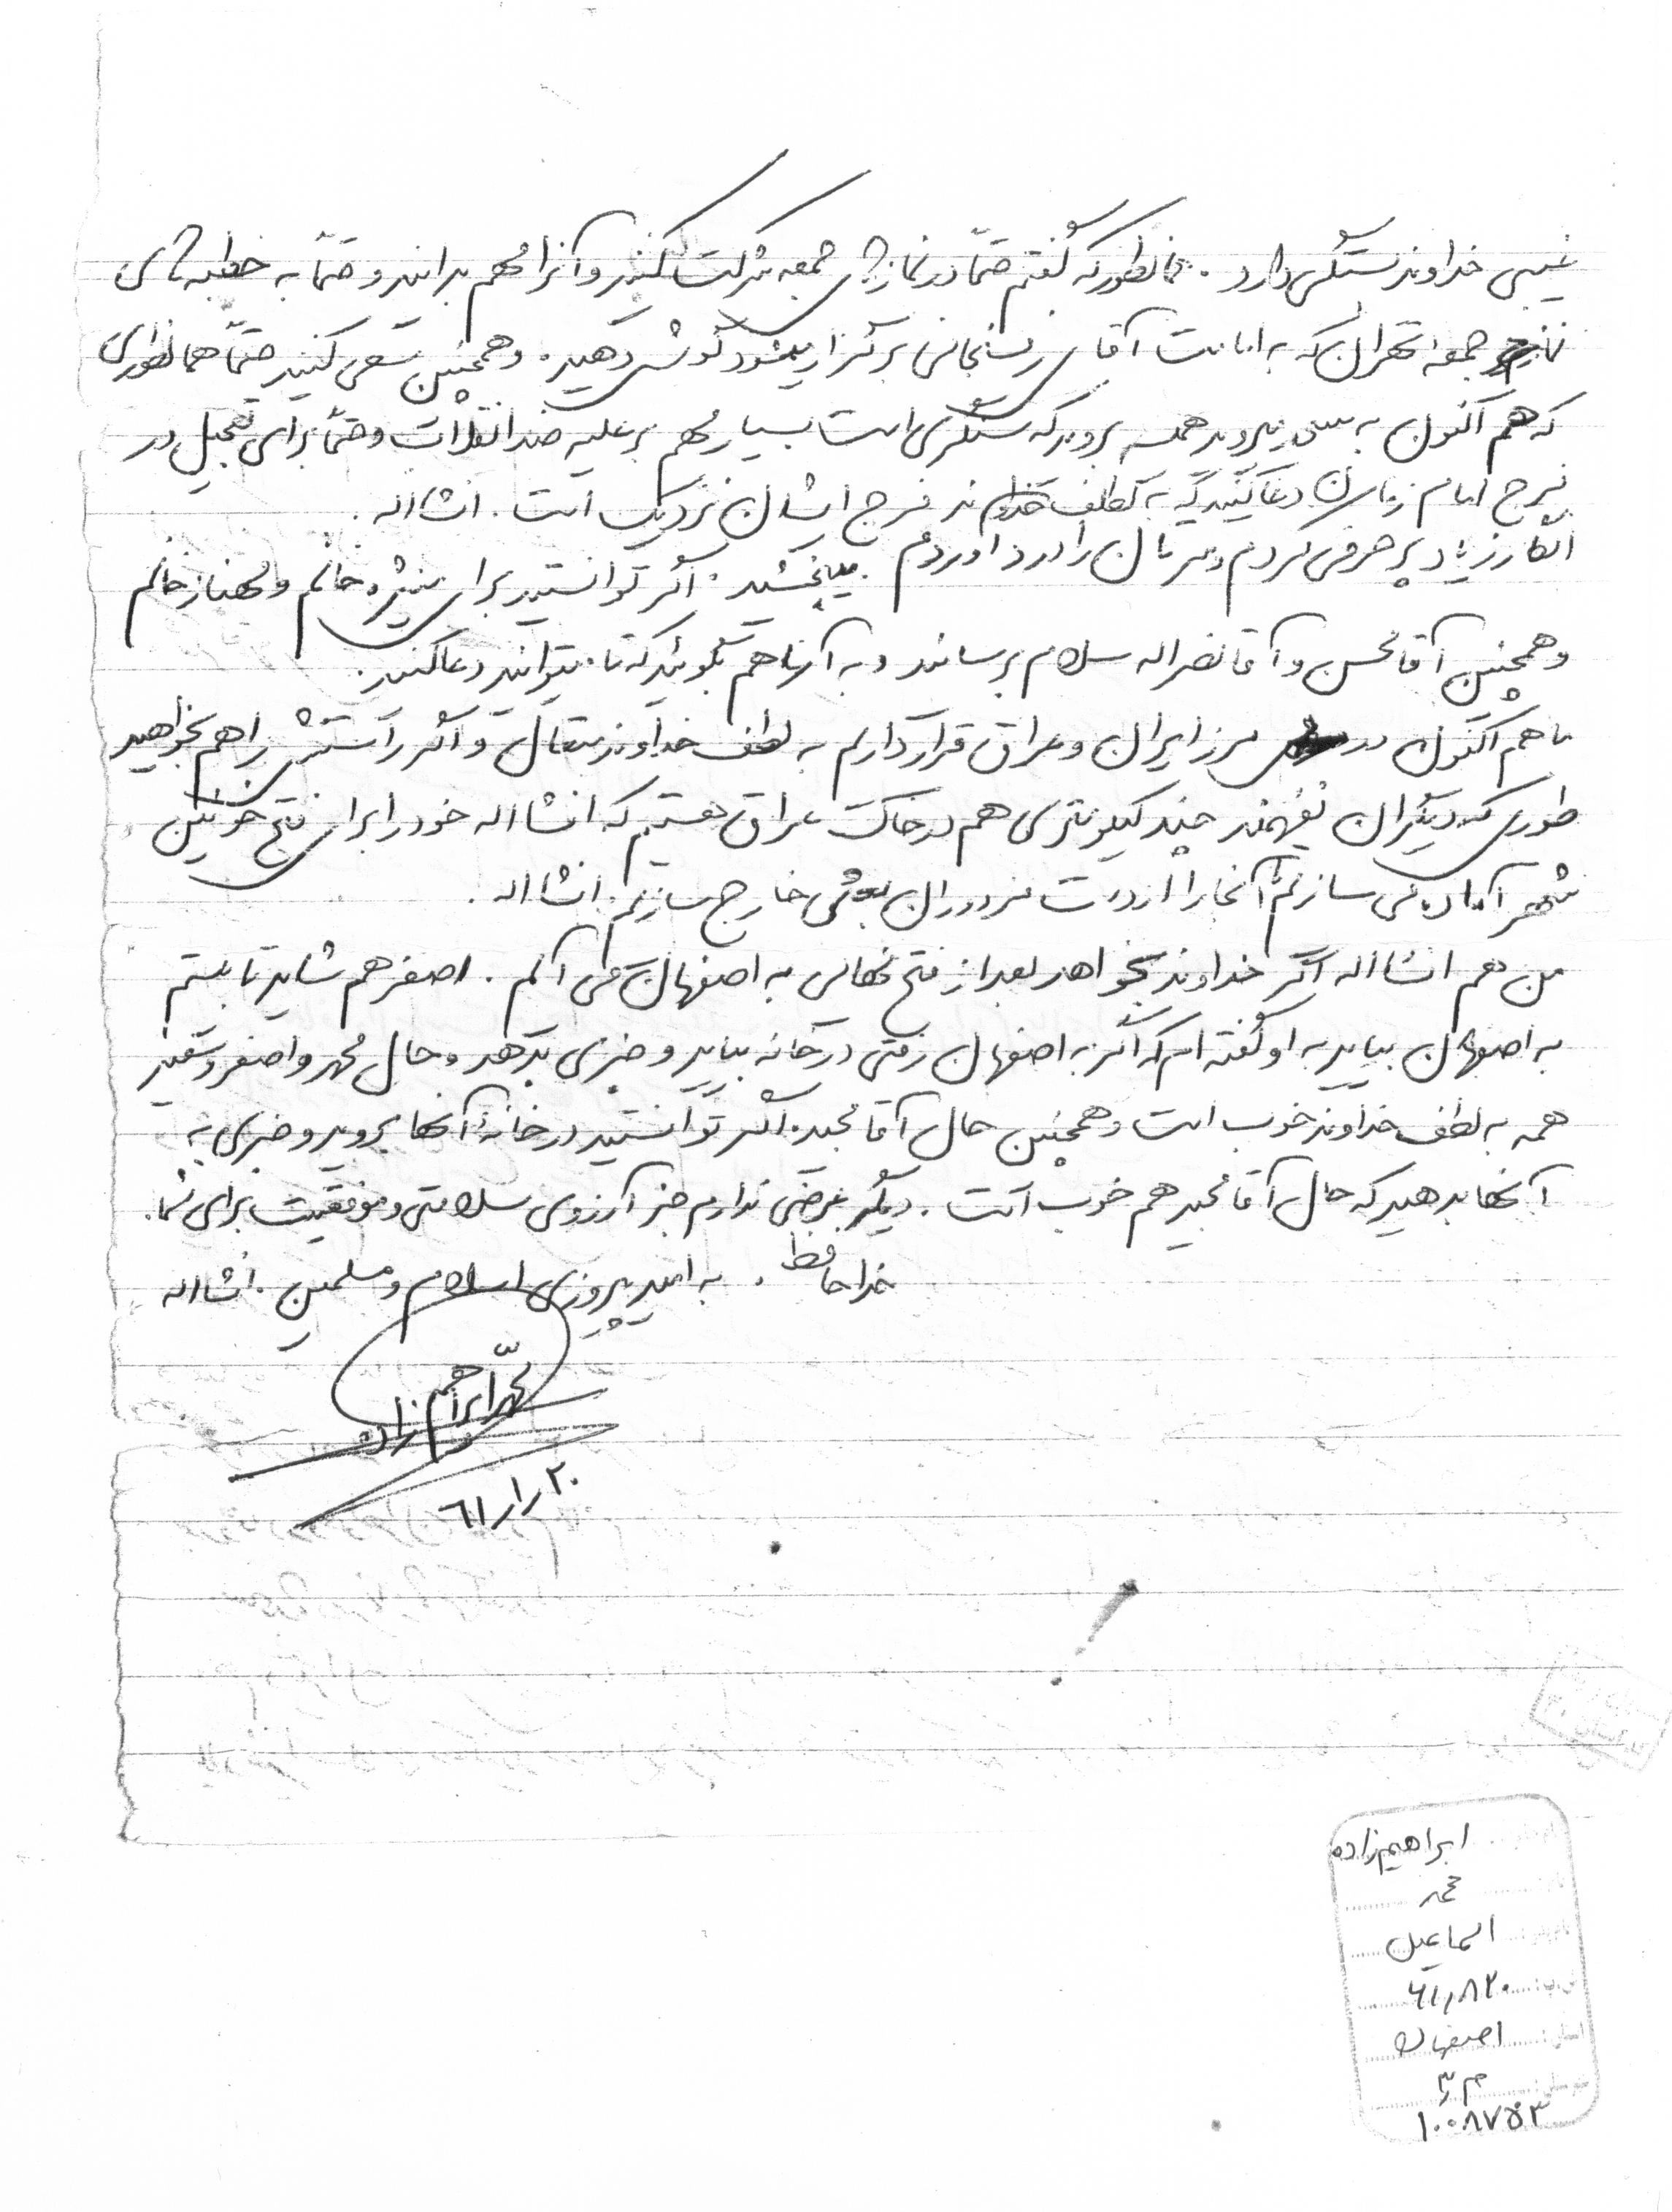 غیبی خداوند بستگی دارد. همانطور که گفتم حتماً در نمازهای جمعه شرکت کنید و آنرا مهم بدانید و حتماً به خطبه‌های
نماز جمعه تهران که به امامت آقای رفسنجانی برگزار میشود گوش دهید. و همچنین سعی کنید حتماً همانطوری
که هم اکنون به میروید همیشه بروید که سنگری است بسیار مهم بر علیه ضد انقلاب و حتماً برای تعجیل در
فرج امام زمان دعا کنید که به لطف خداوند فرج ایشان نزدیک است. انشااله.
انگار زیاد پر حرفی کردم و سرتان را درد آوردم. میبخشید. اگر توانستید برای منیژه خانم و مهناز خانم
و همچنین آقا محسن و آقا نصراله سلام برسانید و به آنها هم بگوئید که تا میتوانید دعا کنید.
ما هم اکنون در مرز ایران و عراق قرار داریم به لطف خداوند متعال و اگر راستش را هم بخواهید
طوری که دیگران نفهمند چند کیلومتری هم در خاک عراق هستیم که انشااله خود را برای فتح خونین
شهر آماده می سازیم آنجا را از دست مزدوران بعثی خارج سازیم. انشااله.
من هم انشااله اگر خداوند بخواهد بعد از فتح نهایی به اصفهان می آیم. اصغر هم شاید تا بیستم
به اصفهان بیاید به او گفته ام که اگر به اصفهان رفتی در خانه بیاید و خبری بدهد و حال محمد و اصغر و سعید
همه به لطف خداوند خوب است و همچنین حال آقا مجید. اگر توانستید در خانه آنها بروید و خبری به
آنها بدهید که حال آقا مجید هم خوب است. دیگر عرضی ندارم جز آرزوی سلامتی و موفقیت برای شما.
خداحافظ. به امید پیروزی اسلام و مسلمین. انشااله
محمد ابراهیم زاده
۶۱/۱/۲۰
ابراهیم‌زاده
محمد
اسماعیل
۶۱٫۸۲۰
اصفهان
م ۳
۱۰۰۸۷۵۳